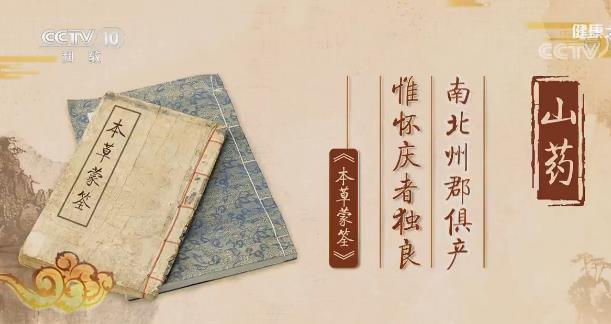 CCTV 10
科教
健康之
CCTV
山药
南北州郡俱产
惟怀庆者独良
《本草蒙筌》
本草蒙筌